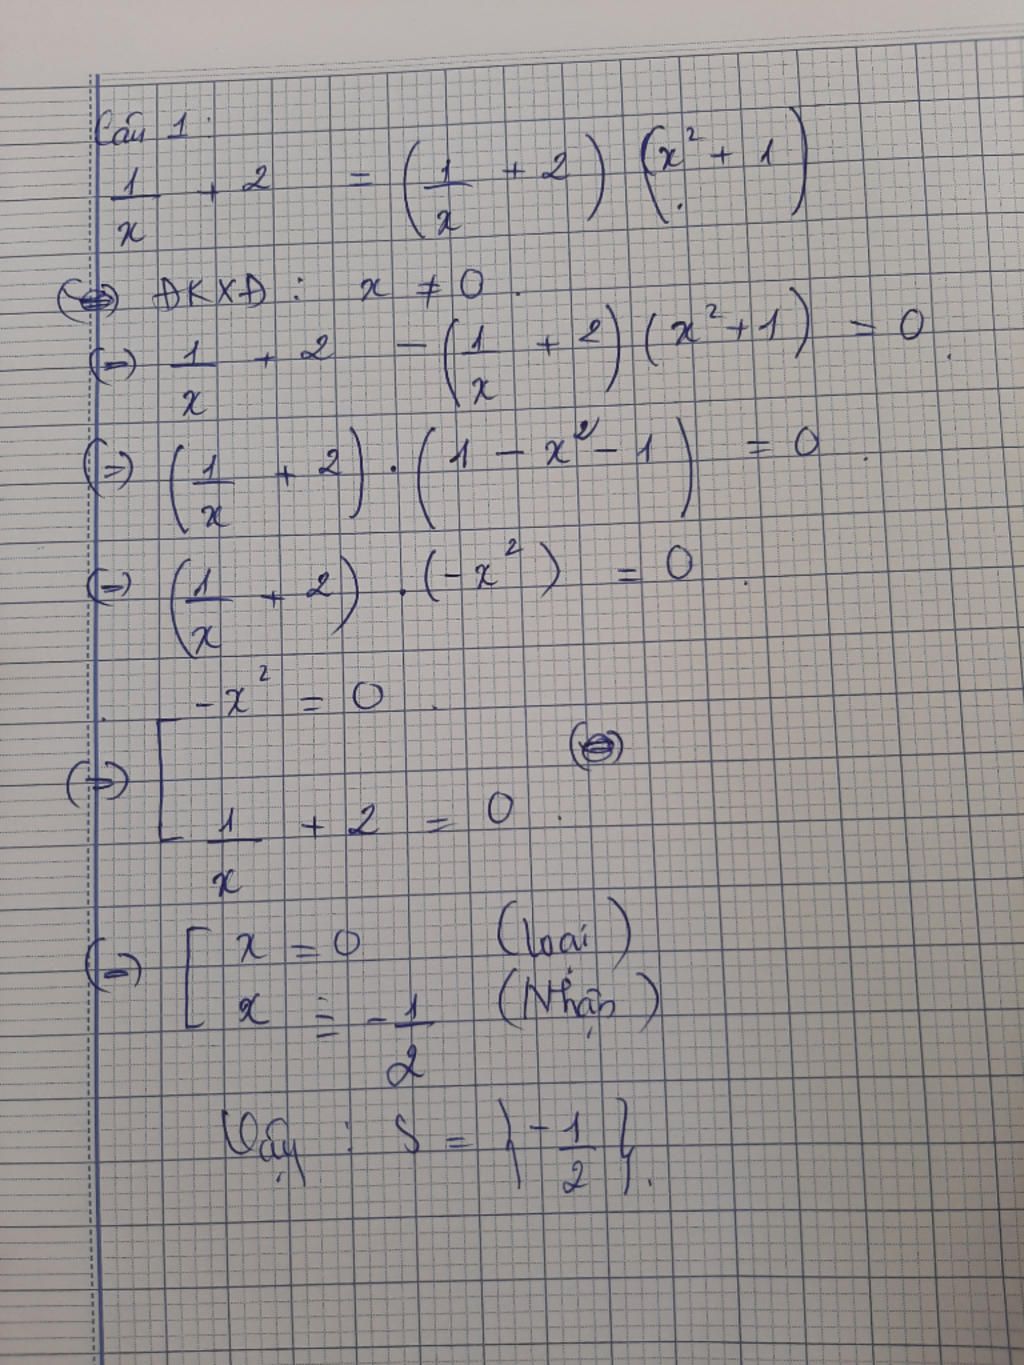 Câu 1:
1/x + 2 = (1/x + 2) (x² + 1)
ĐKXĐ : x ≠ 0.
(=) 1/x + 2 - (1/x + 2) (x² + 1) = 0.
(=) (1/x + 2) . (1 - x² - 1) = 0.
(=) (1/x + 2) . (-x²) = 0.
(=) [ -x² = 0.
1/x + 2 = 0.
(=) [ x = 0 (loại)
x = -1/2 (Nhận)
Vậy : S = {-1/2}.